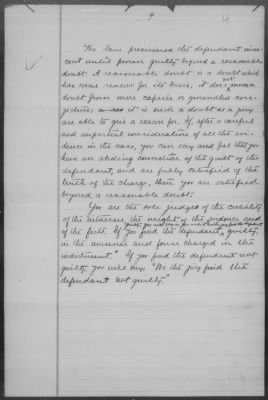 4
The law presumes the defendant inno-
cent until proven guilty beyond a reasonable
doubt. A reasonable doubt is a doubt which
has some reason for its basis, it does not mean a
doubt from mere caprice or groundless con-
jectures it is such a doubt as a jury
are able to give a reason for. If, after a careful
and impartial consideration of all the evi-
dence in the case, you can say and feel that you
have an abiding conviction of the guilt of the
defendant, and are fully satisfied of the
truth of the charge, then you are satisfied
beyond a reasonable doubt.
You are the sole judges of the credibility
of the witnesses the weight of the evidence and
of the facts. If you find the defendant guilty,
in the manner and form charged in the
indictment." If you find the defendant not
guilty, you will say "We the jury find the
defendant not guilty."